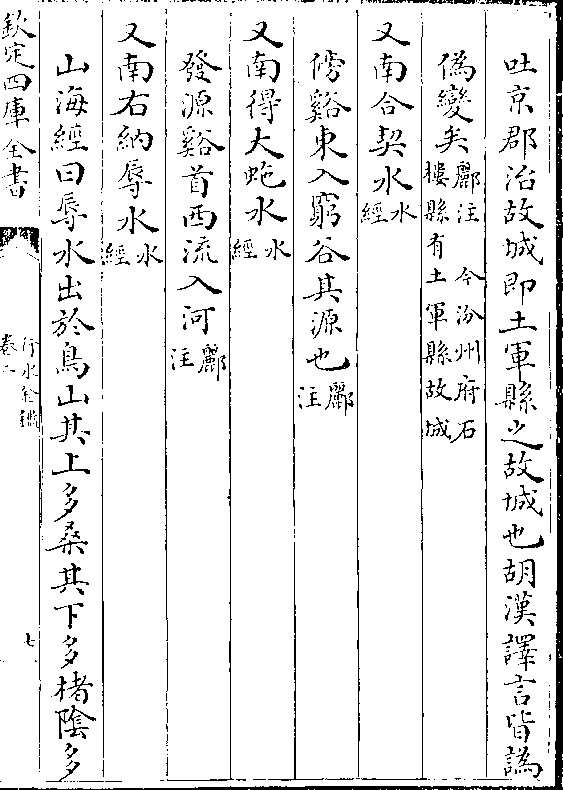 吐京郡治故城即土軍縣之故城也胡漢譯言音譌
偽變矣酈注 今汾州府石樓縣有土軍縣故城
又南合契水水經
傍谿東入窮谷其源也酈注
又南得大蛇水水經
發源谿首西流入河酈注
又南右納辱水水經
山海經曰辱水出於鳥山其上多桑其下多楮陰多
欽定四庫全書
行水金鑑
卷一
七